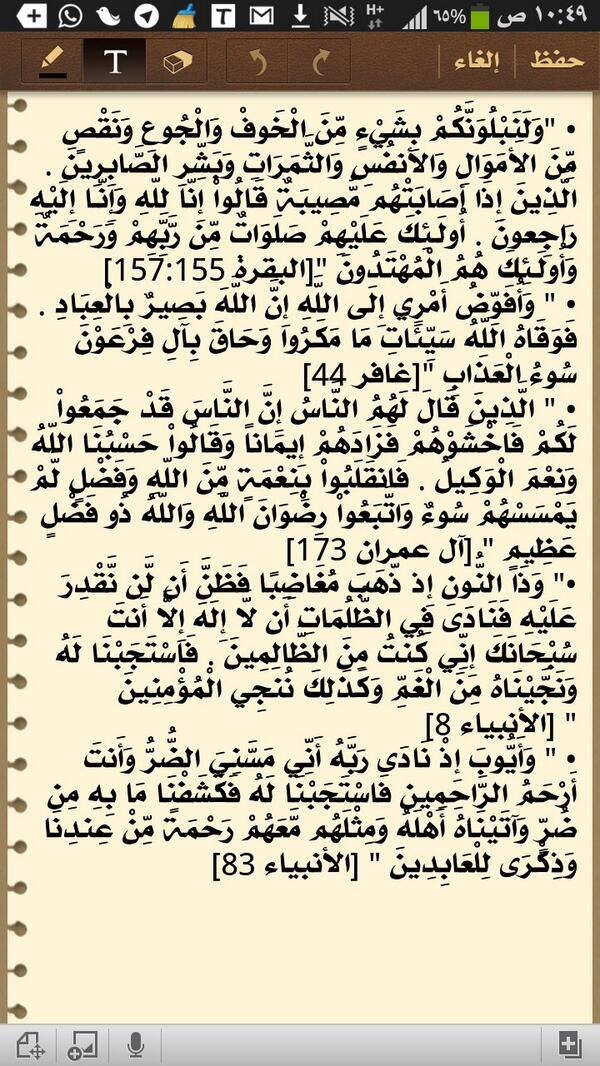 ١٠:٤٩ ص ٦٥% H+
حفظ إلغاء T
• "وَلَنَبْلُوَنَّكُمْ بِشَيْءٍ مِّنَ الْخَوفْ وَالْجُوعِ وَنَقْصٍ
مِّنَ الأَمَوَالِ وَالأنفُسِ وَالثَّمَرَاتِ وَبَشِّرِ الصَّابِرِينَ .
الَّذِينَ إِذَا أَصَابَتْهُم مُّصِيبَةٌ قَالُواْ إِنَّا لِلّهِ وَإِنَّا إِلَيْهِ
رَاجِعونَ . أُولَئِكَ عَلَيْهِمْ صَلَوَاتٌ مِّن رَّبِّهِمْ وَرَحْمَةٌ
وَأُولَئِكَ هُمُ الْمُهْتَدُونَ "[البقرة 157:155]
• " وَأُفَوِّضُ أَمْرِي إِلَى اللَّهِ إِنَّ اللَّهَ بَصِيرٌ بِالْعِبَادِ .
فَوَقَاهُ اللَّهُ سَيِّئَاتِ مَا مَكَرُوا وَحَاقَ بِآلِ فِرْعَوْنَ
سُوءُ الْعَذَابِ "[غافر 44]
• " الَّذِينَ قَالَ لَهُمُ النَّاسُ إِنَّ النَّاسَ قَدْ جَمَعُواْ
لَكُمْ فَاخْشَوْهُمْ فَزَادَهُمْ إِيمَاناً وَقَالُواْ حَسْبُنَا اللّهُ
وَنِعْمَ الْوَكِيلُ . فَانقَلَبُواْ بِنِعْمَةٍ مِّنَ اللّهِ وَفَضْلٍ لَّمْ
يَمْسَسْهُمْ سُوءٌ وَاتَّبَعُواْ رِضْوَانَ اللّهِ وَاللّهُ ذُو فَضْلٍ
عَظِيمٍ " [آل عمران 173]
•" وَذَا النُّونِ إِذ ذَّهَبَ مُغَاضِبًا فَظَنَّ أَن لَّن نَّقْدِرَ
عَلَيْهِ فَنَادَى فِي الظُّلُمَاتِ أَن لَّا إِلَهَ إِلَّا أَنتَ
سُبْحَانَكَ إِنِّي كُنتُ مِنَ الظَّالِمِينَ . فَاسْتَجَبْنَا لَهُ
وَنَجَّيْنَاهُ مِنَ الْغَمِّ وَكَذَلِكَ نُنجِي الْمُؤْمِنِينَ
" [الأنبياء 8]
• " وَأَيُّوبَ إِذْ نَادَى رَبَّهُ أَنِّي مَسَّنِيَ الضُّرُّ وَأَنتَ
أَرْحَمُ الرَّاحِمِينَ فَاسْتَجَبْنَا لَهُ فَكَشَفْنَا مَا بِهِ مِن
ضُرٍّ وَآتَيْنَاهُ أَهْلَهُ وَمِثْلَهُم مَّعَهُمْ رَحْمَةً مِّنْ عِندِنَا
وَذِكْرَى لِلْعَابِدِينَ " [الأنبياء 83]